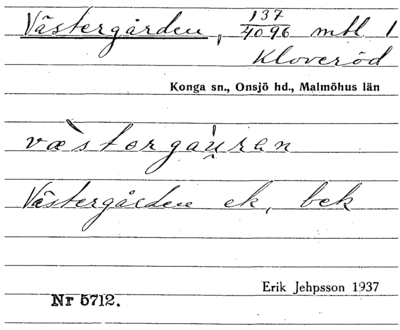 Västergården, 137/4096 mtl 1
Kloveröd
Konga sn., Onsjö hd., Malmöhus län
væ̀stərgau̯rən
Västergården ek, bek
Erik Jehpsson 1937
Nr 5712.